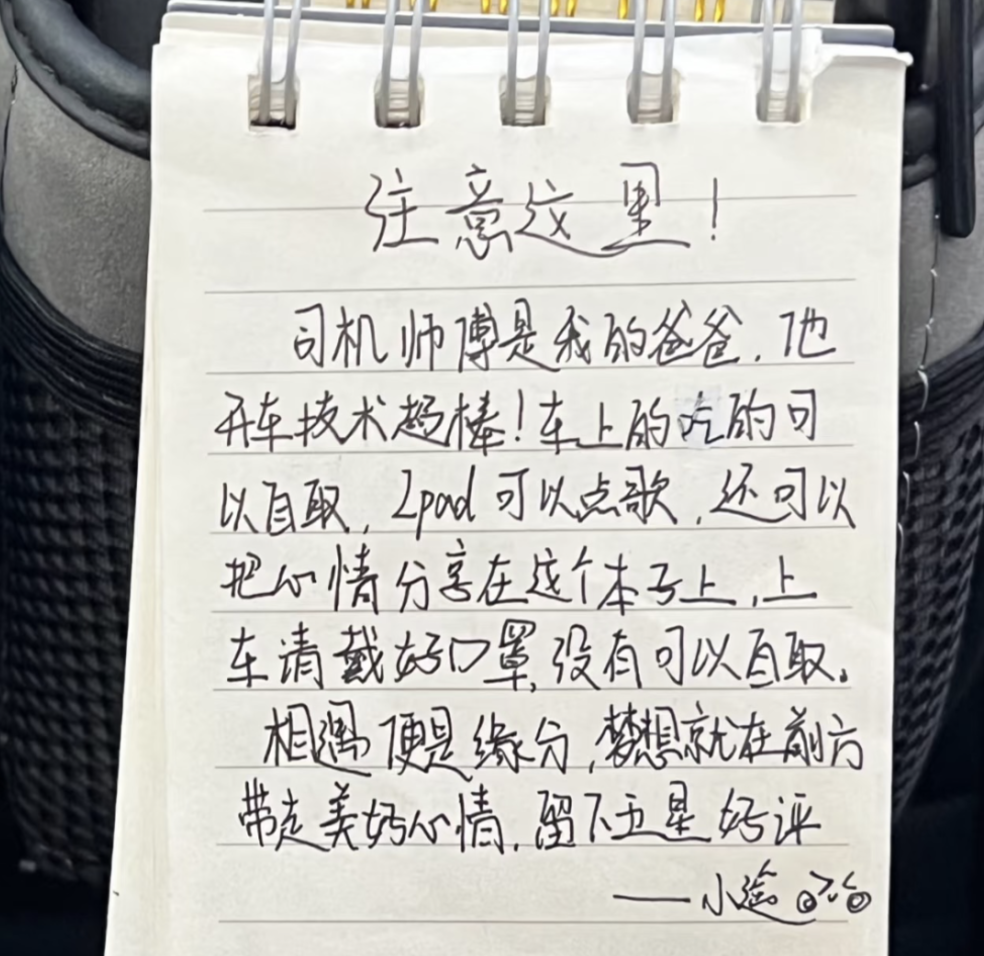 注意这里!
司机师傅是我的爸爸,他
开车技术超棒!车上的吃的可
以自取,Ipad可以点歌,还可以
把心情分享在这个本子上,上
车请戴好口罩,没有可以自取。
相遇便是缘分,梦想就在前方
带走美好心情,留下五星好评
——小